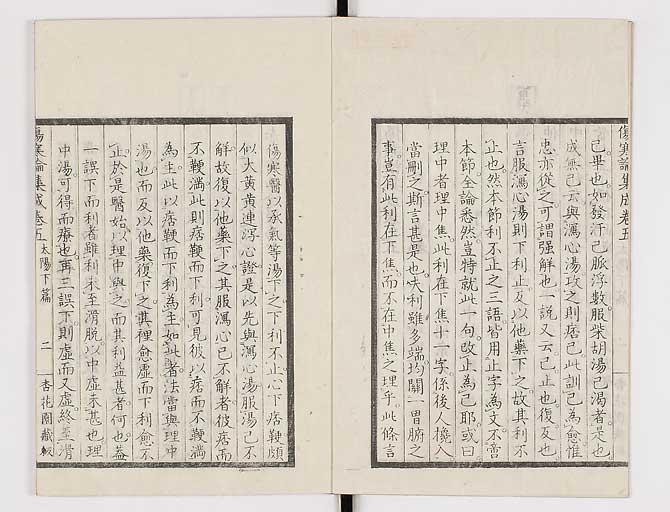 傷寒論集成卷五
己畢也如發汗已脈浮數服柴胡湯已渴者是也
成無己云與瀉心湯攻之則痞已此訓已為愈惟
忠亦從之可謂強解也一說又云已止也復反也
言服瀉心湯則下利止反以他藥下之故其利不
止也然本節利不止之三語皆用止字為文不啻
本節全論悉然豈特就此一句改止為已耶或曰
理中者理中焦此利在下焦十一字係後人攙入
當刪之斯言甚是也夫利雖多端均關一胃腑之
事豈有此利在下焦而不在中焦之理乎此條言
傷寒醫以承氣等湯下之下利不止心下痞鞕頗
似大黃黃連瀉心證是以先與瀉心湯服湯已不
解故復以他藥下之其服瀉心已不解者彼痞而
不鞕滿此則痞鞕而下利可見彼以痞而不鞕滿
為主此以痞鞕而下利為主如此者法當與理中
湯也而反以他藥復下之其裡愈虛而下利愈不
止於是醫始以理中與之而其利益甚者何也蓋
一誤下而利者雖利未至滑脫以中虛未甚也理
中湯可得而療也再三誤下則虛而又虛終至滑
傷寒論集成卷五 太陽下篇 二 杏花園藏板